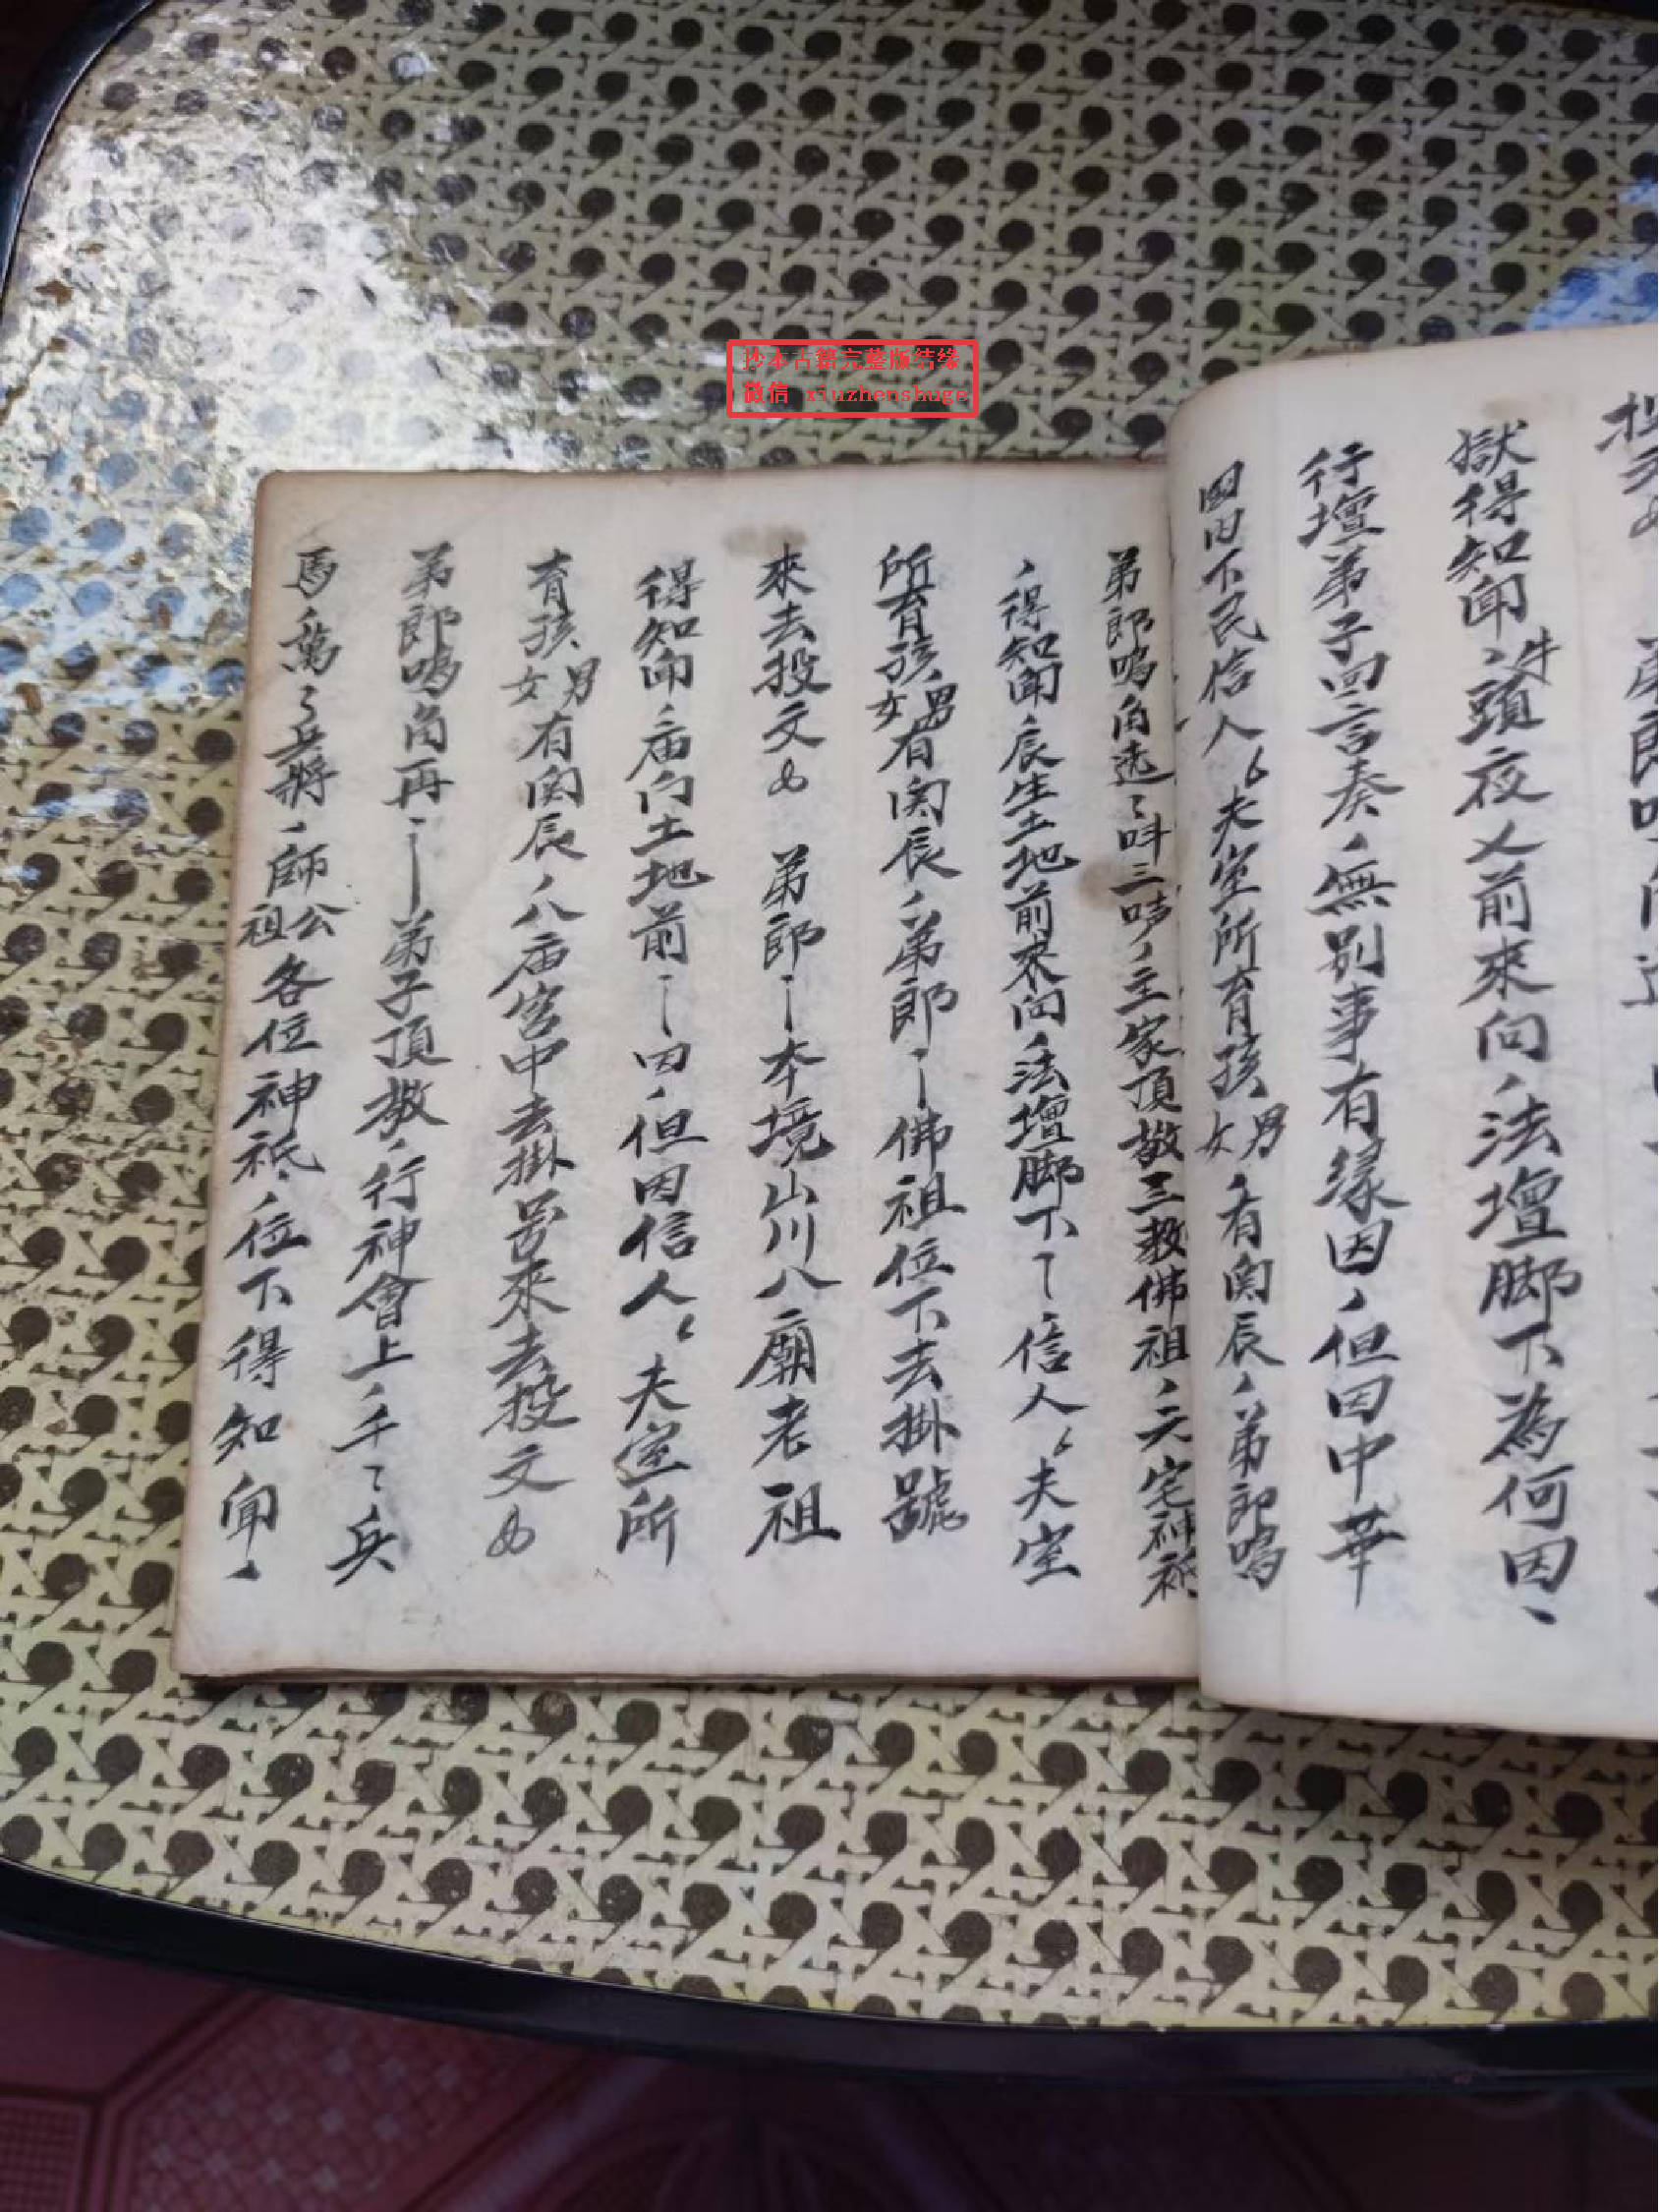 抄本古籍完整版结缘
微信 xiuzhenshuge
投文
弟郎
獄得知聞、牛頭夜乂前來向、法壇脚下為何因、
行壇弟子回言奏、無別事有緣因、但因中華
囯内下民信人、夫室所育孩男女、有関辰、弟郎鳴
弟郎鳴角迭〻呌三声、主家頂敬三教佛祖、六宅神祇
、得知聞、辰生土地前來向、法壇脚下 信人、夫室
所育孩男女有関辰、弟郎 佛祖位下去掛號
來去投文 弟郎 本境山川八廟老祖
得知聞、庙内土地前 回、但因信人、夫室所
育孩男女有関辰、八庙宮中去掛号來去投文
弟郎鳴角再 弟子頂敬、行神會上、千〻兵
馬、萬〻兵將、師公祖各位神祇、位下得知聞、